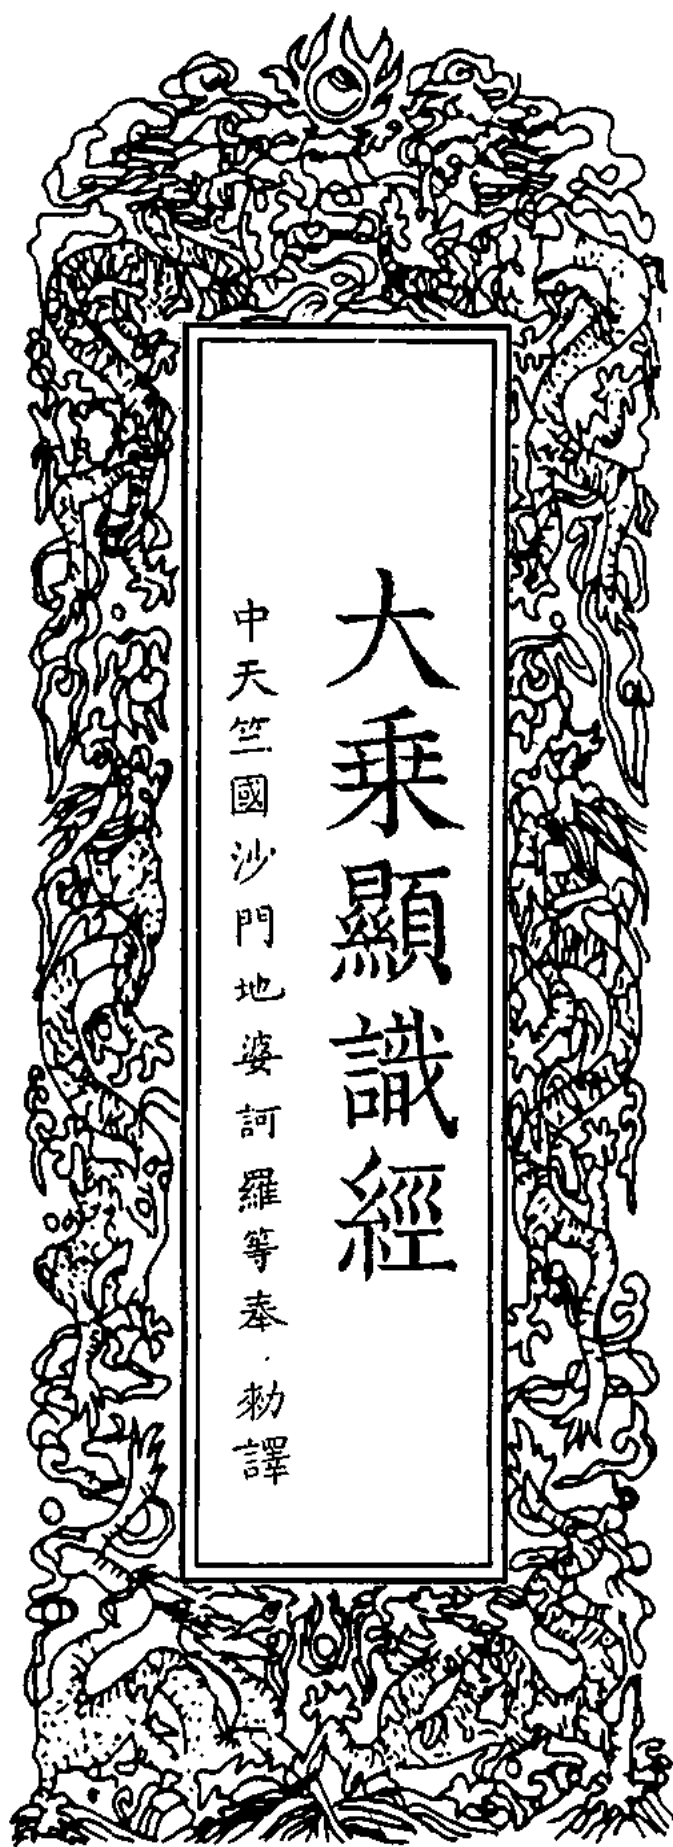 大乗顯識經
中天竺國沙門地婆訶羅等奉勑譯